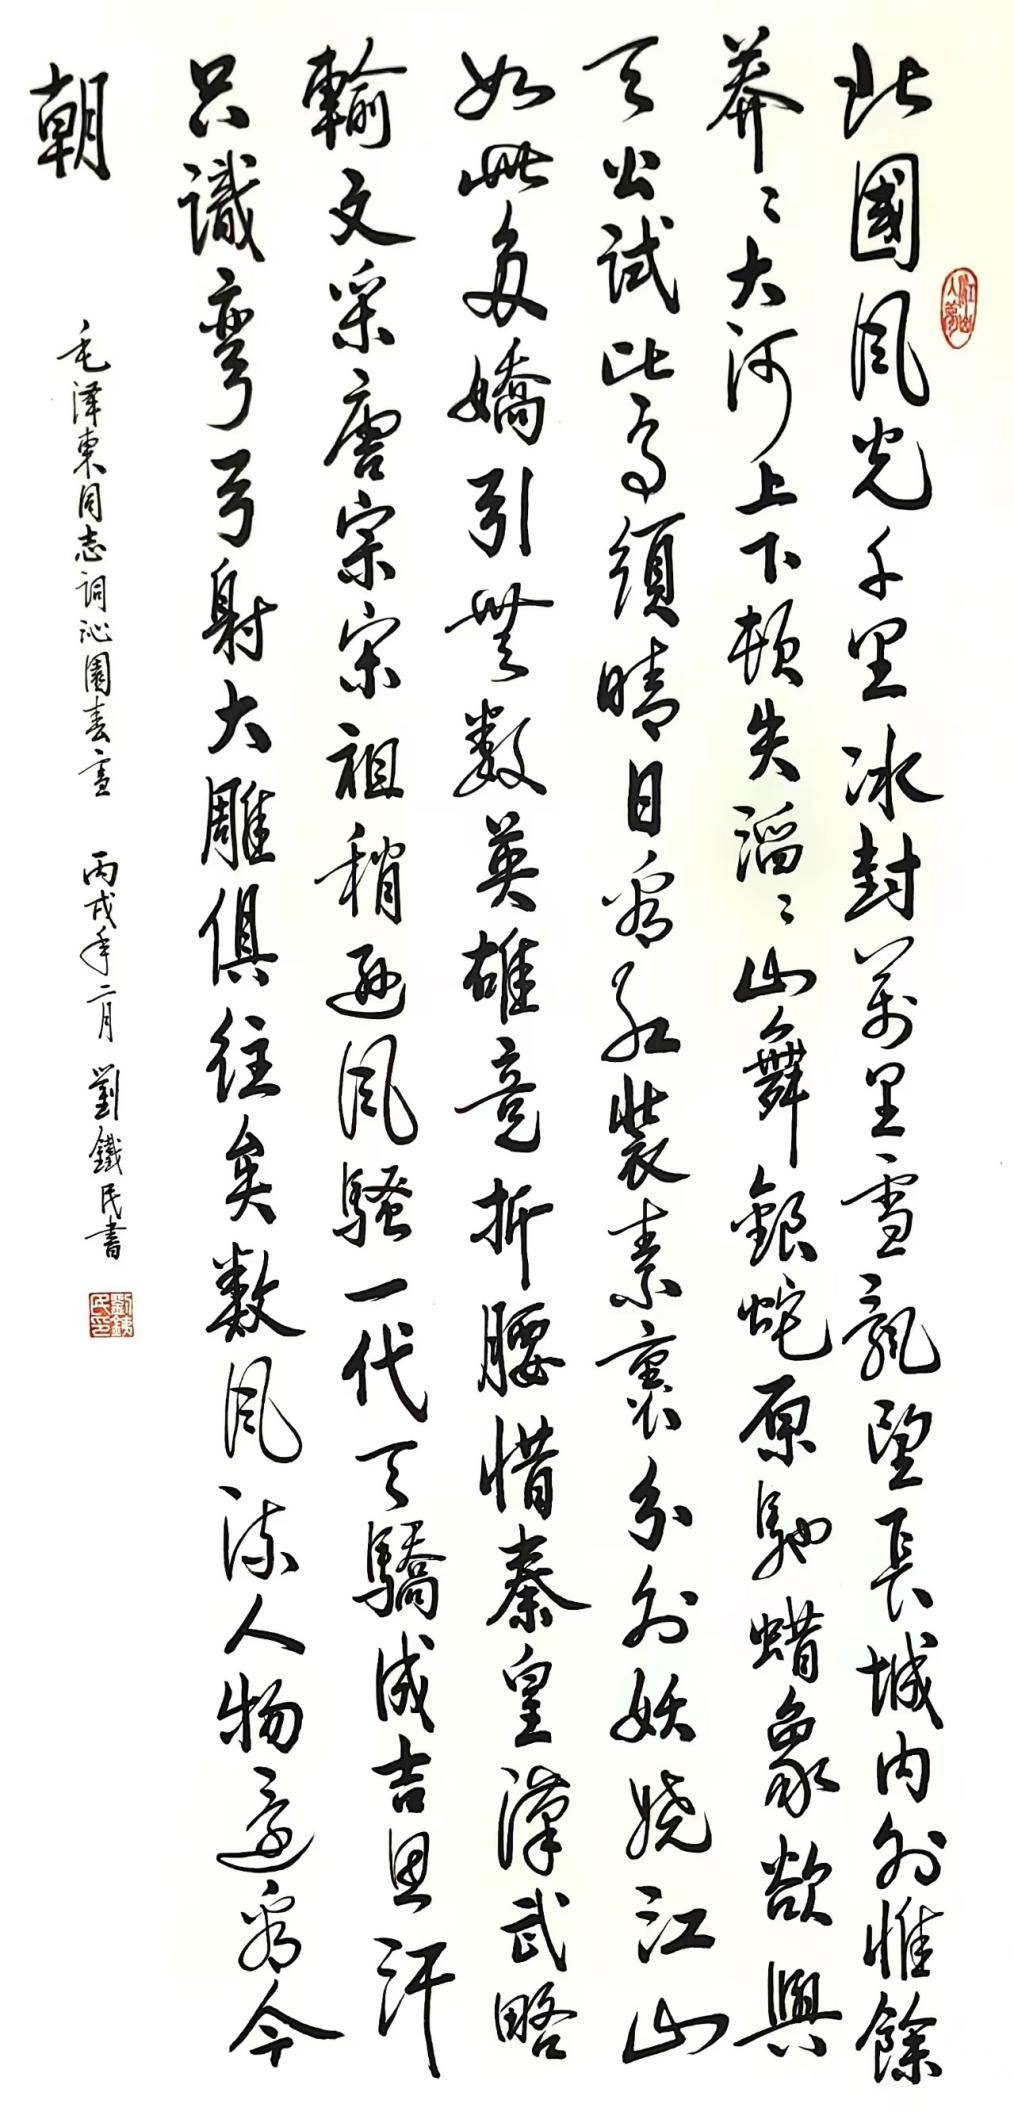 北國風光千里冰封萬里雪飄望長城内外惟餘
莽〻大河上下頓失滔〻山舞銀蛇原馳蜡象欲與
天公試比高須晴日看紅裝素裹分外妖嬈江山
如此多嬌引無數英雄竟折腰惜秦皇漢武略
輸文采唐宗宋祖稍遜風騷一代天驕成吉思汗
只識彎弓射大雕俱往矣數風流人物還看今
朝
毛澤東同志詞沁園春雪 丙戌年二月 劉鐵民書
劉鐵民印